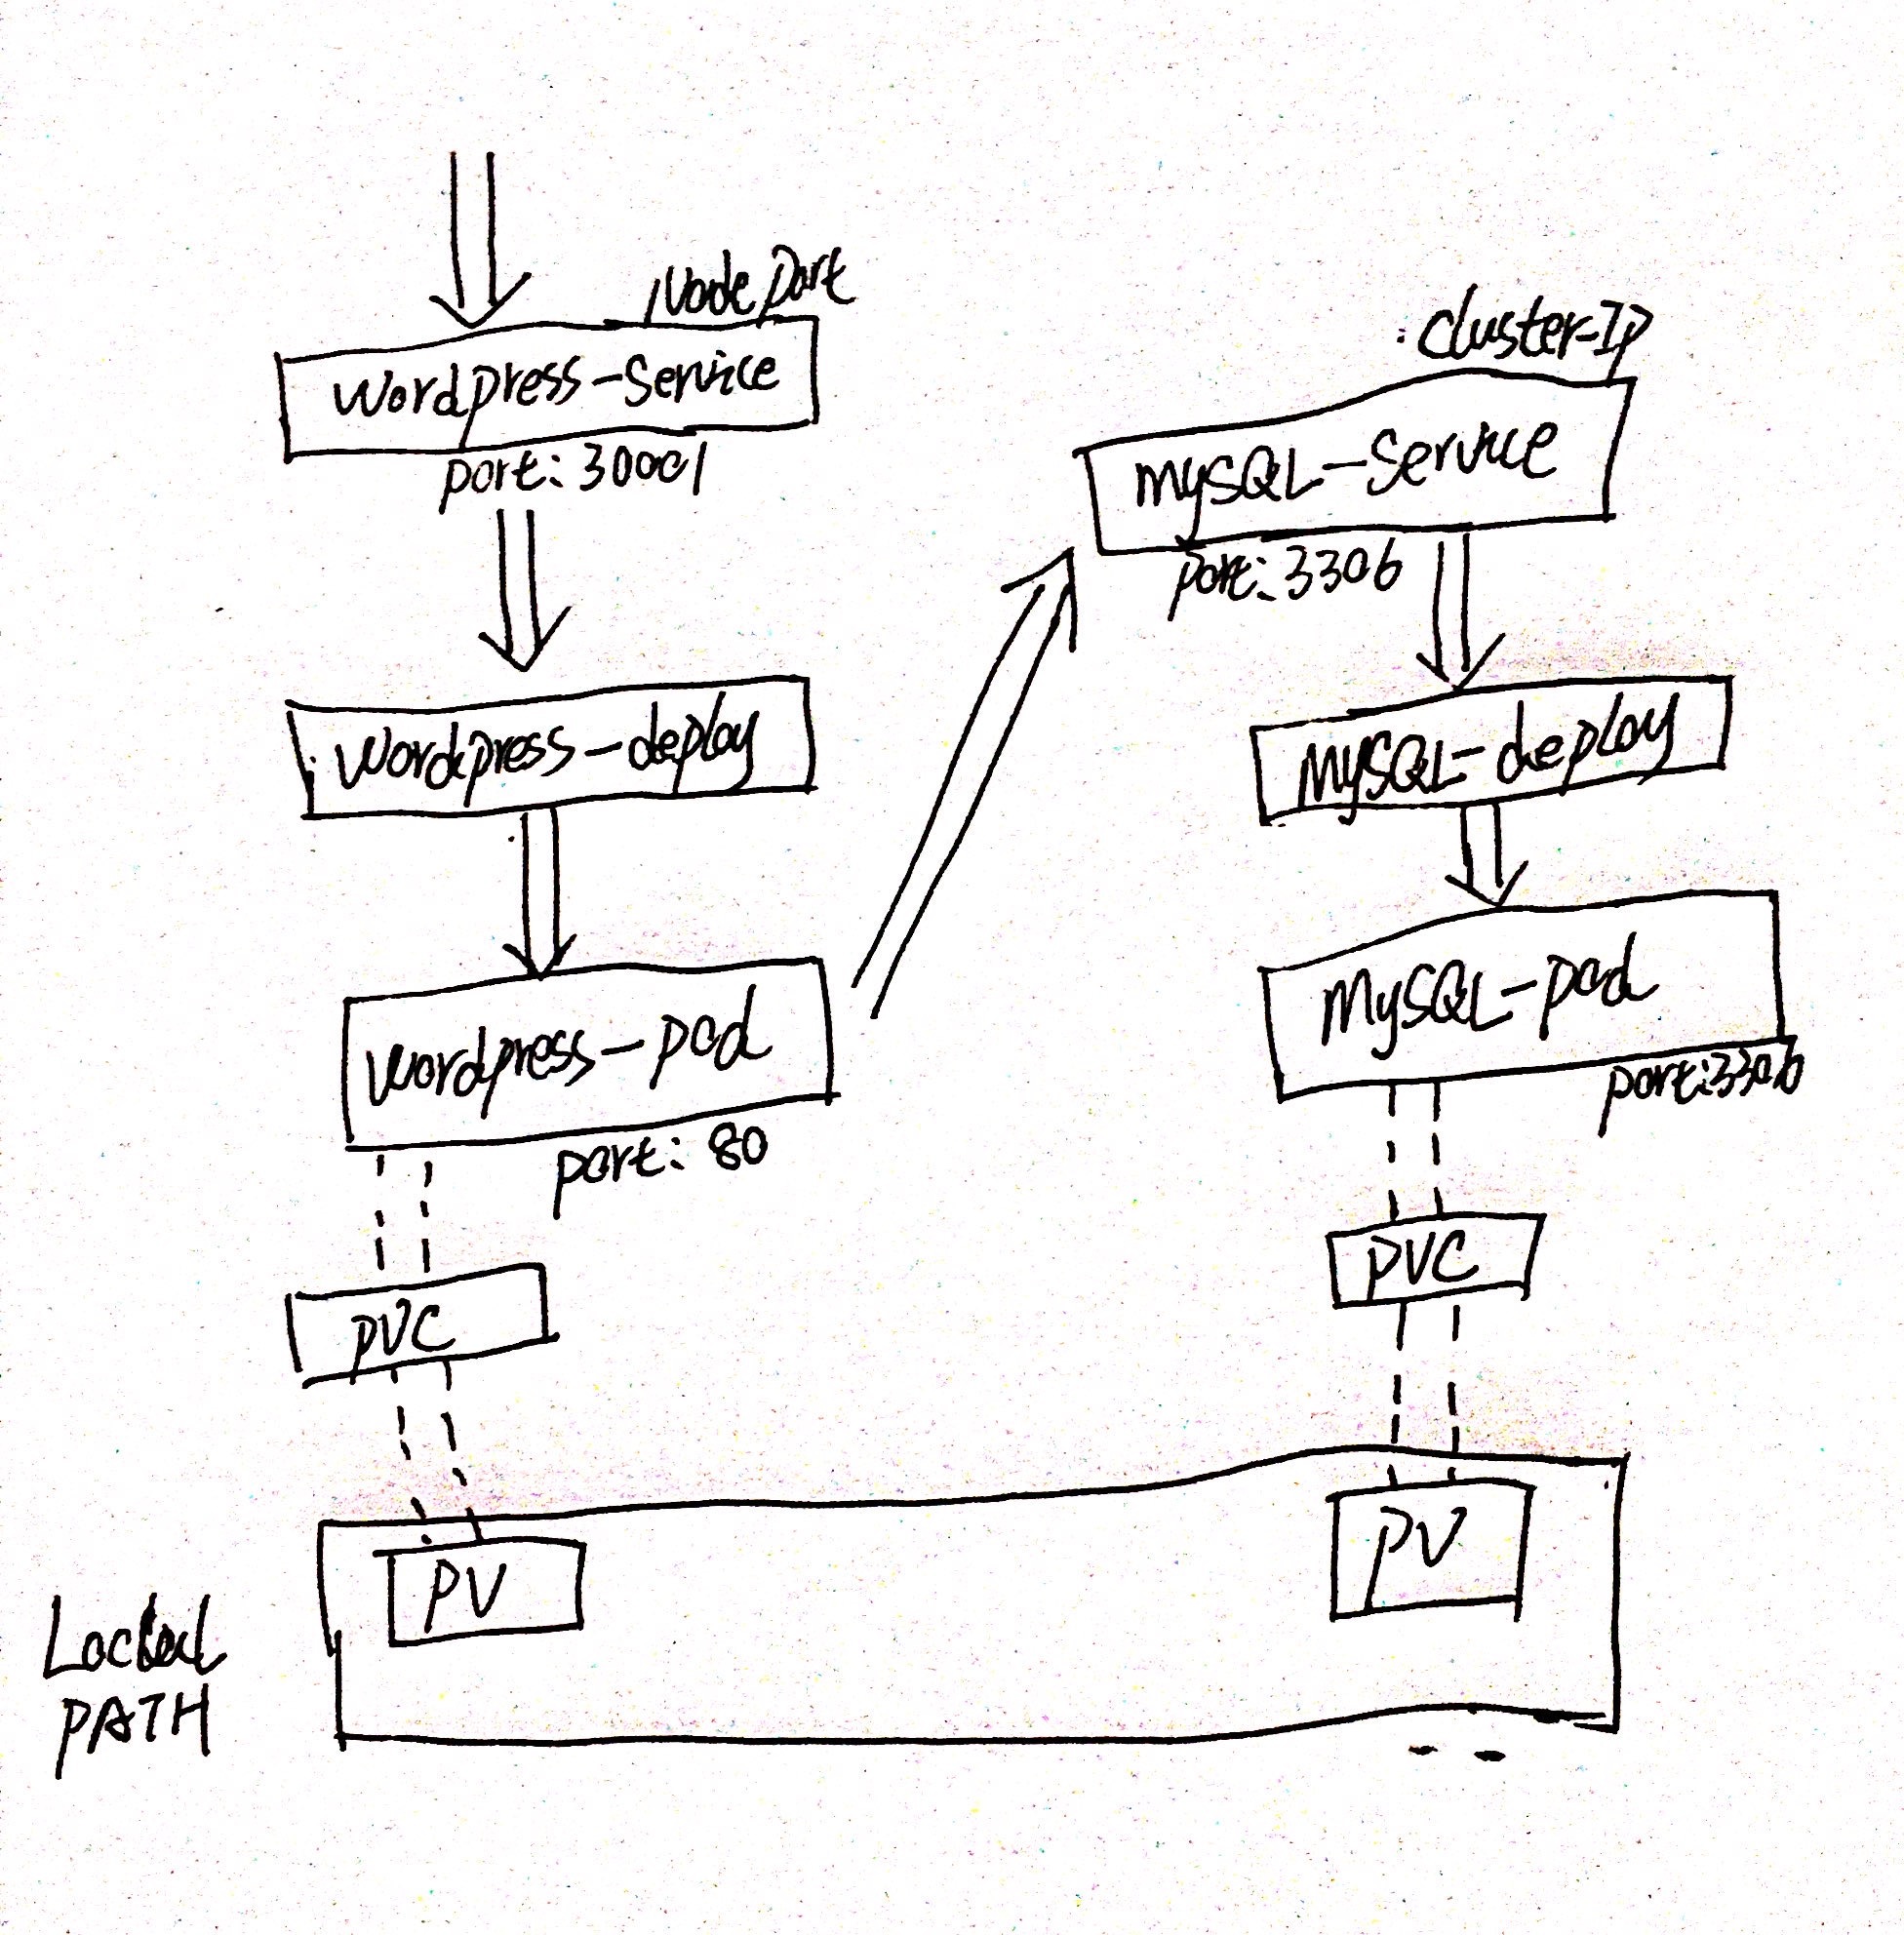 Node Port
wordpress-service
port: 30001
wordpress-deploy
wordpress-pod
port: 80
PVC
PV
cluster-IP
mySQL-service
port: 3306
MySQL-deploy
MySQL-pod
port:3306
PVC
PV
PATH